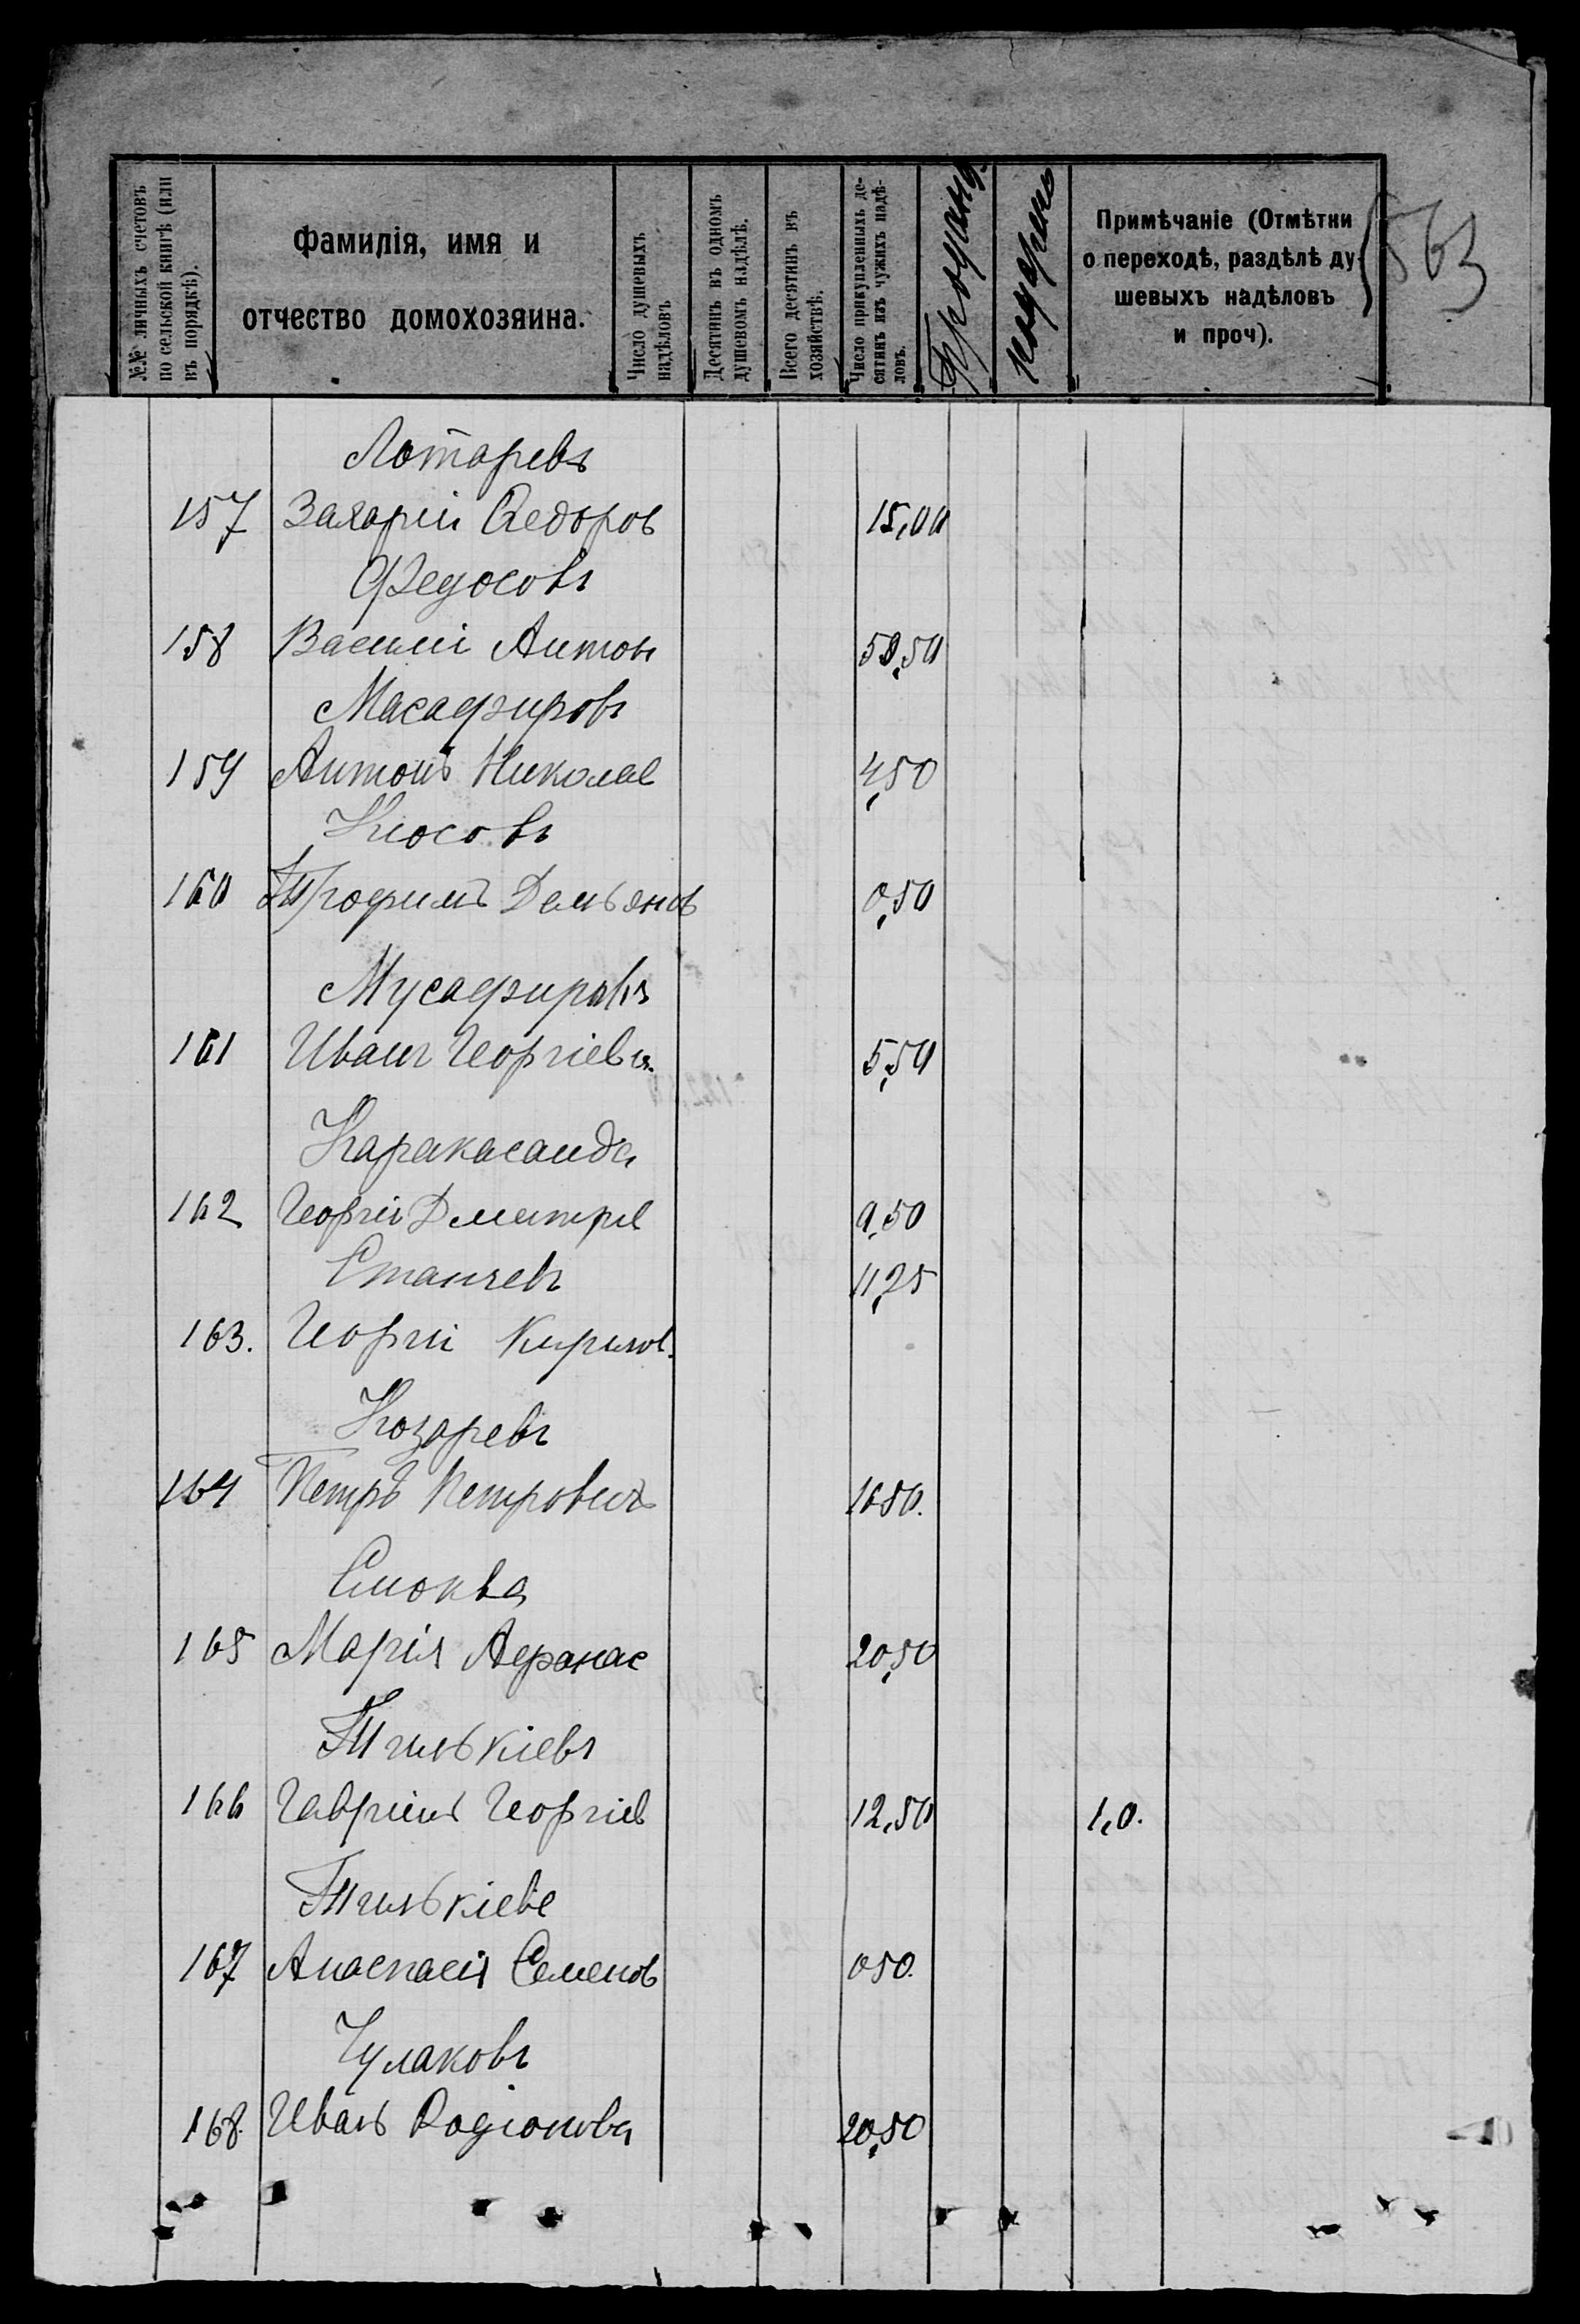 №№ личныхъ счетовъ по сельской книгѣ (или въ порядкѣ).
Фамилія, имя и отчество домохозяина.
Число душевыхъ надѣловъ
Десятинъ въ одномъ душевомъ надѣлѣ.
Всего десятинъ въ хозяйствѣ.
Число прикупленныхъ десятинъ изъ чужихъ надѣловъ.
Примѣчаніе (Отмѣтки о переходѣ, раздѣлѣ душевыхъ надѣловъ и проч).
563
Лотаревъ
157 Захарій Ѳедоров 15,00
Федосовъ
158 Василій Антон
Масафировъ
159 Антонъ Николае 4,50
Кіосовъ
160 Трофимъ Демьянов 0,50
Мусафировъ
161 Иванъ Георгіевъ. 5,50
Каракасаида
162 Георгій Дмитріе 9,50
Станчевъ 11,25
163. Георгій Кирилов.
Козаревъ
164 Петръ Петровичъ 1650.
Смоква
165 Марія Афанас 20,50
Тилькіевъ
166 Гавріилъ Георгіев 12,50 1,0.
Тилькіеве
167 Анастасія Семенов 050.
Чулаковъ
168. Иванъ Родіонова 20,50